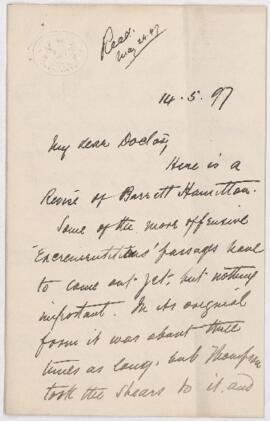 Recd.
May 24. 97
14. 5. 97
My dear Doctor,
Here is a
Revise of Barrett Hamilton.
Some of the more offensive
'Excrementitious' passages have
to come out yet, but nothing
important. In its original
form it was about three
times as long, but Thompson
took the shears to it, and